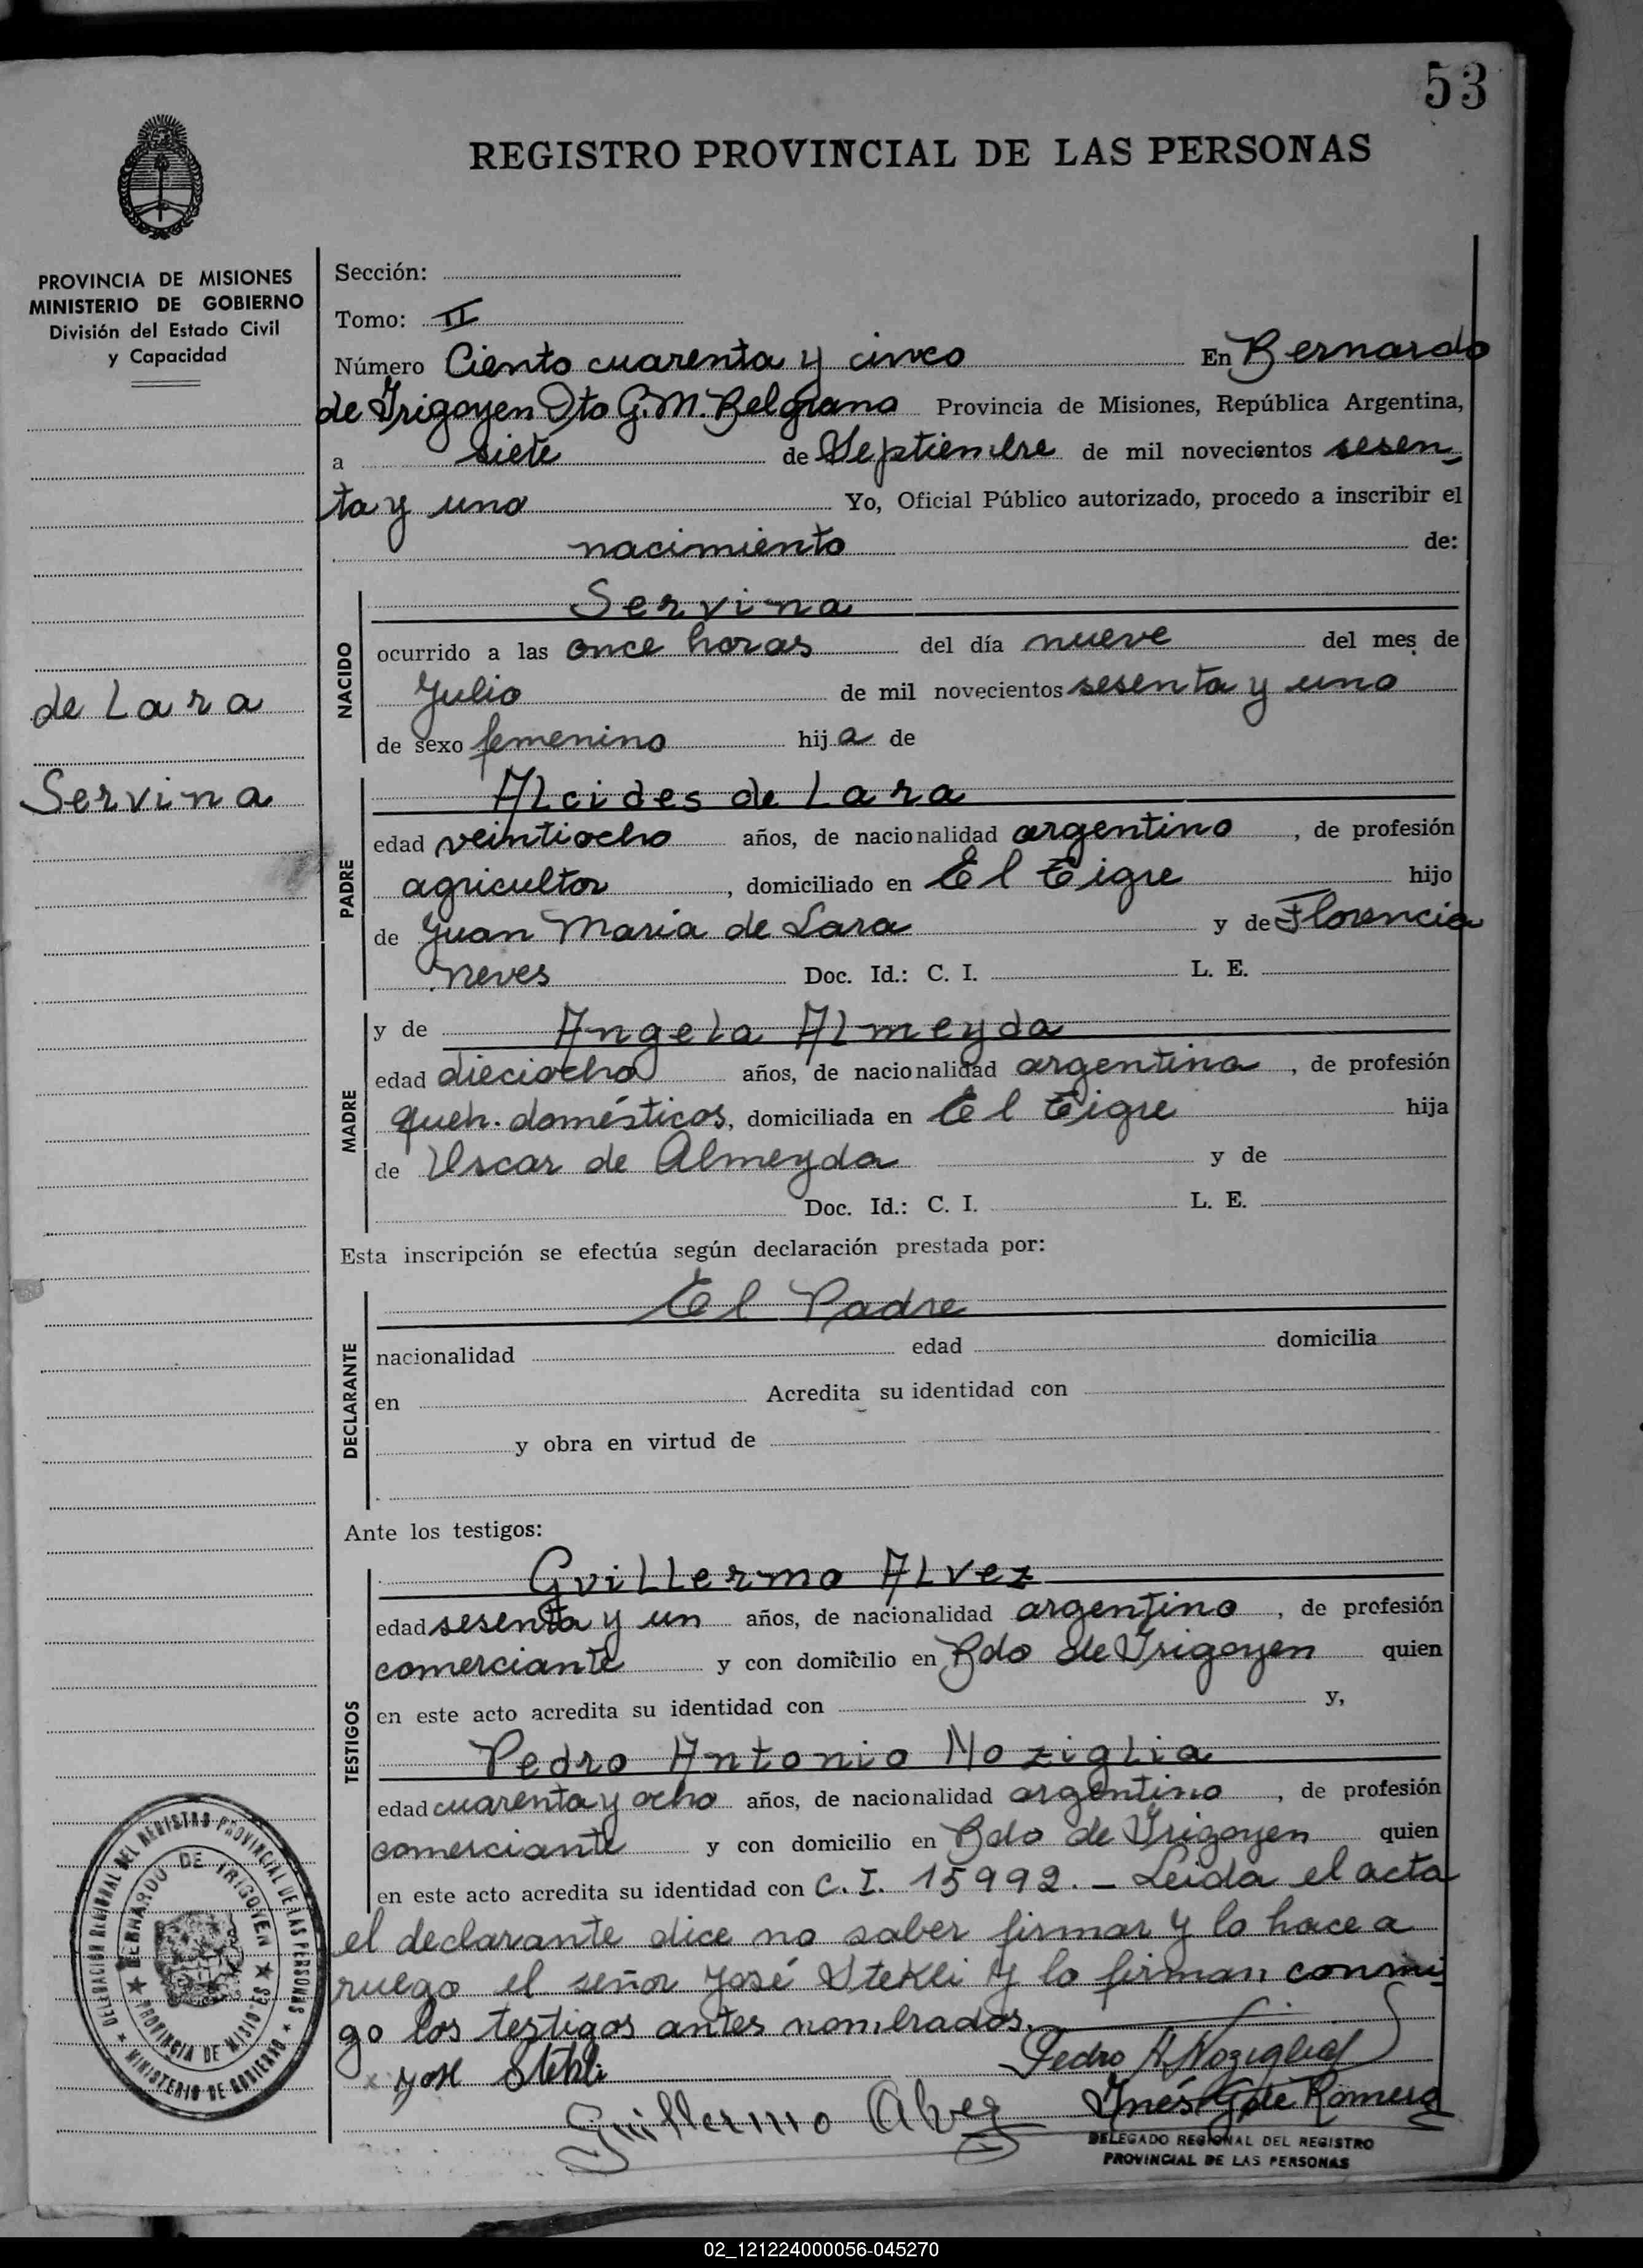 53
REGISTRO PROVINCIAL DE LAS PERSONAS
PROVINCIA DE MISIONES
MINISTERIO DE GOBIERNO
División del Estado Civil
y Capacidad
de Lara
Servina
Sección:
Tomo: II
Número Ciento cuarenta y cinco En Bernardo
de Irigoyen Dto G. M. Belgrano Provincia de Misiones, República Argentina,
a siete de Septiembre de mil novecientos sesen-
ta y uno Yo, Oficial Público autorizado, procedo a inscribir el
nacimiento de:
NACIDO
Servina
ocurrido a las once horas del día nueve del mes de
Julio de mil novecientos sesenta y uno
de sexo femenino hija de
PADRE
Alcides de Lara
edad veintiocho años, de nacionalidad argentino, de profesión
agricultor, domiciliado en El Tigre hijo
de Juan María de Lara y de Florencia
Neves Doc. Id.: C. I. L. E.
MADRE
y de Angela Almeyda
edad dieciocho años, de nacionalidad argentina, de profesión
queh. domésticos, domiciliada en El Tigre hija
de Oscar de Almeyda y de
Doc. Id.: C. I. L. E.
Esta inscripción se efectúa según declaración prestada por:
DECLARANTE
El Padre
nacionalidad edad domicilia
en Acredita su identidad con
y obra en virtud de
Ante los testigos:
TESTIGOS
Guillermo Alvez
edad sesenta y un años, de nacionalidad argentino, de profesión
comerciante y con domicilio en Bdo de Irigoyen quien
en este acto acredita su identidad con y,
Pedro Antonio Noziglia
edad cuarenta y ocho años, de nacionalidad argentino, de profesión
comerciante y con domicilio en Bdo de Irigoyen quien
en este acto acredita su identidad con C. I. 15992. - Leida el acta
el declarante dice no saber firmar y lo hace a
ruego el señor José Stekli y lo firman conmi-
go los testigos antes nombrados.
José Stekli
Pedro A Noziglia
Guillermo Alvez
Inés G de Romero
DELEGADO REGIONAL DEL REGISTRO
PROVINCIAL DE LAS PERSONAS
DELEGACION REGIONAL DEL REGISTRO PROVINCIAL DE LAS PERSONAS
BERNARDO DE IRIGOYEN
PROVINCIA DE MISIONES
MINISTERIO DE GOBIERNO
02_121224000056-045270